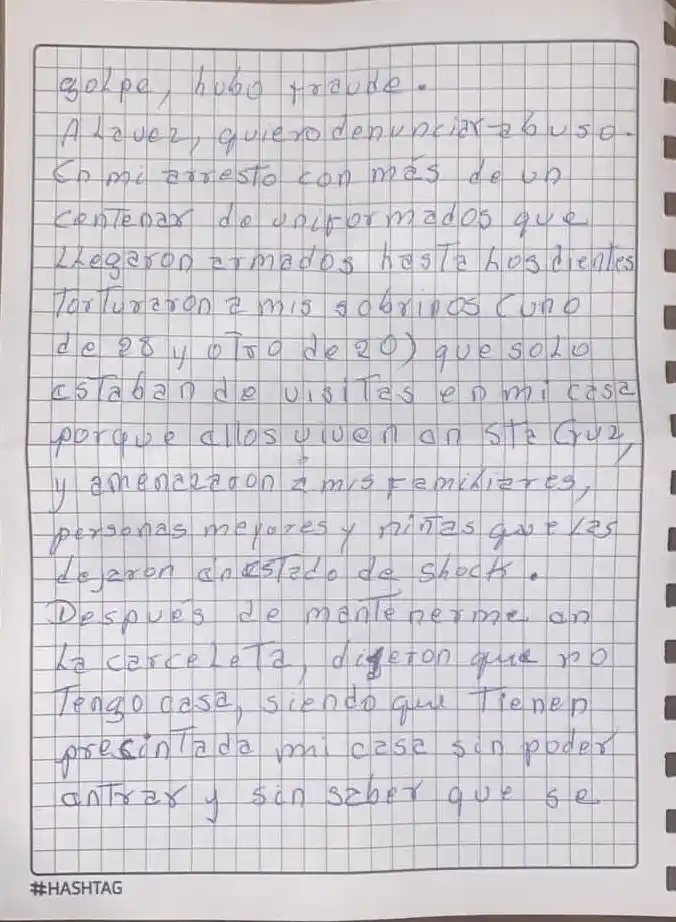 golpe, hubo fraude.
A la vez, quiero denunciar abuso.
En mi arresto con más de un
centenar de uniformados que
llegaron armados hasta los dientes
Torturaron a mis sobrinos (uno
de 28 y otro de 20) que solo
estaban de visitas en mi casa
porque ellos viven en Sta Cruz,
y amenazaron a mis familiares,
personas mayores y niñas que las
dejaron en estado de shock.
Después de mantenerme en
la carceleta, digeron que no
Tengo casa, siendo que Tienen
presintada mi casa sin poder
entrar y sin saber que se
#HASHTAG